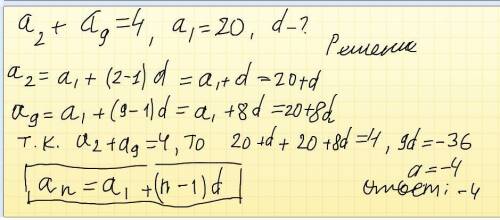 a₂ + a₉ = 4, a₁ = 20, d - ?
Решение
a₂ = a₁ + (2-1)d = a₁ + d = 20 + d
a₉ = a₁ + (9-1)d = a₁ + 8d = 20 + 8d
т.к. a₂ + a₉ = 4, то 20 + d + 20 + 8d = 4, 9d = -36
a = -4
aₙ = a₁ + (n-1)d
Ответ: -4